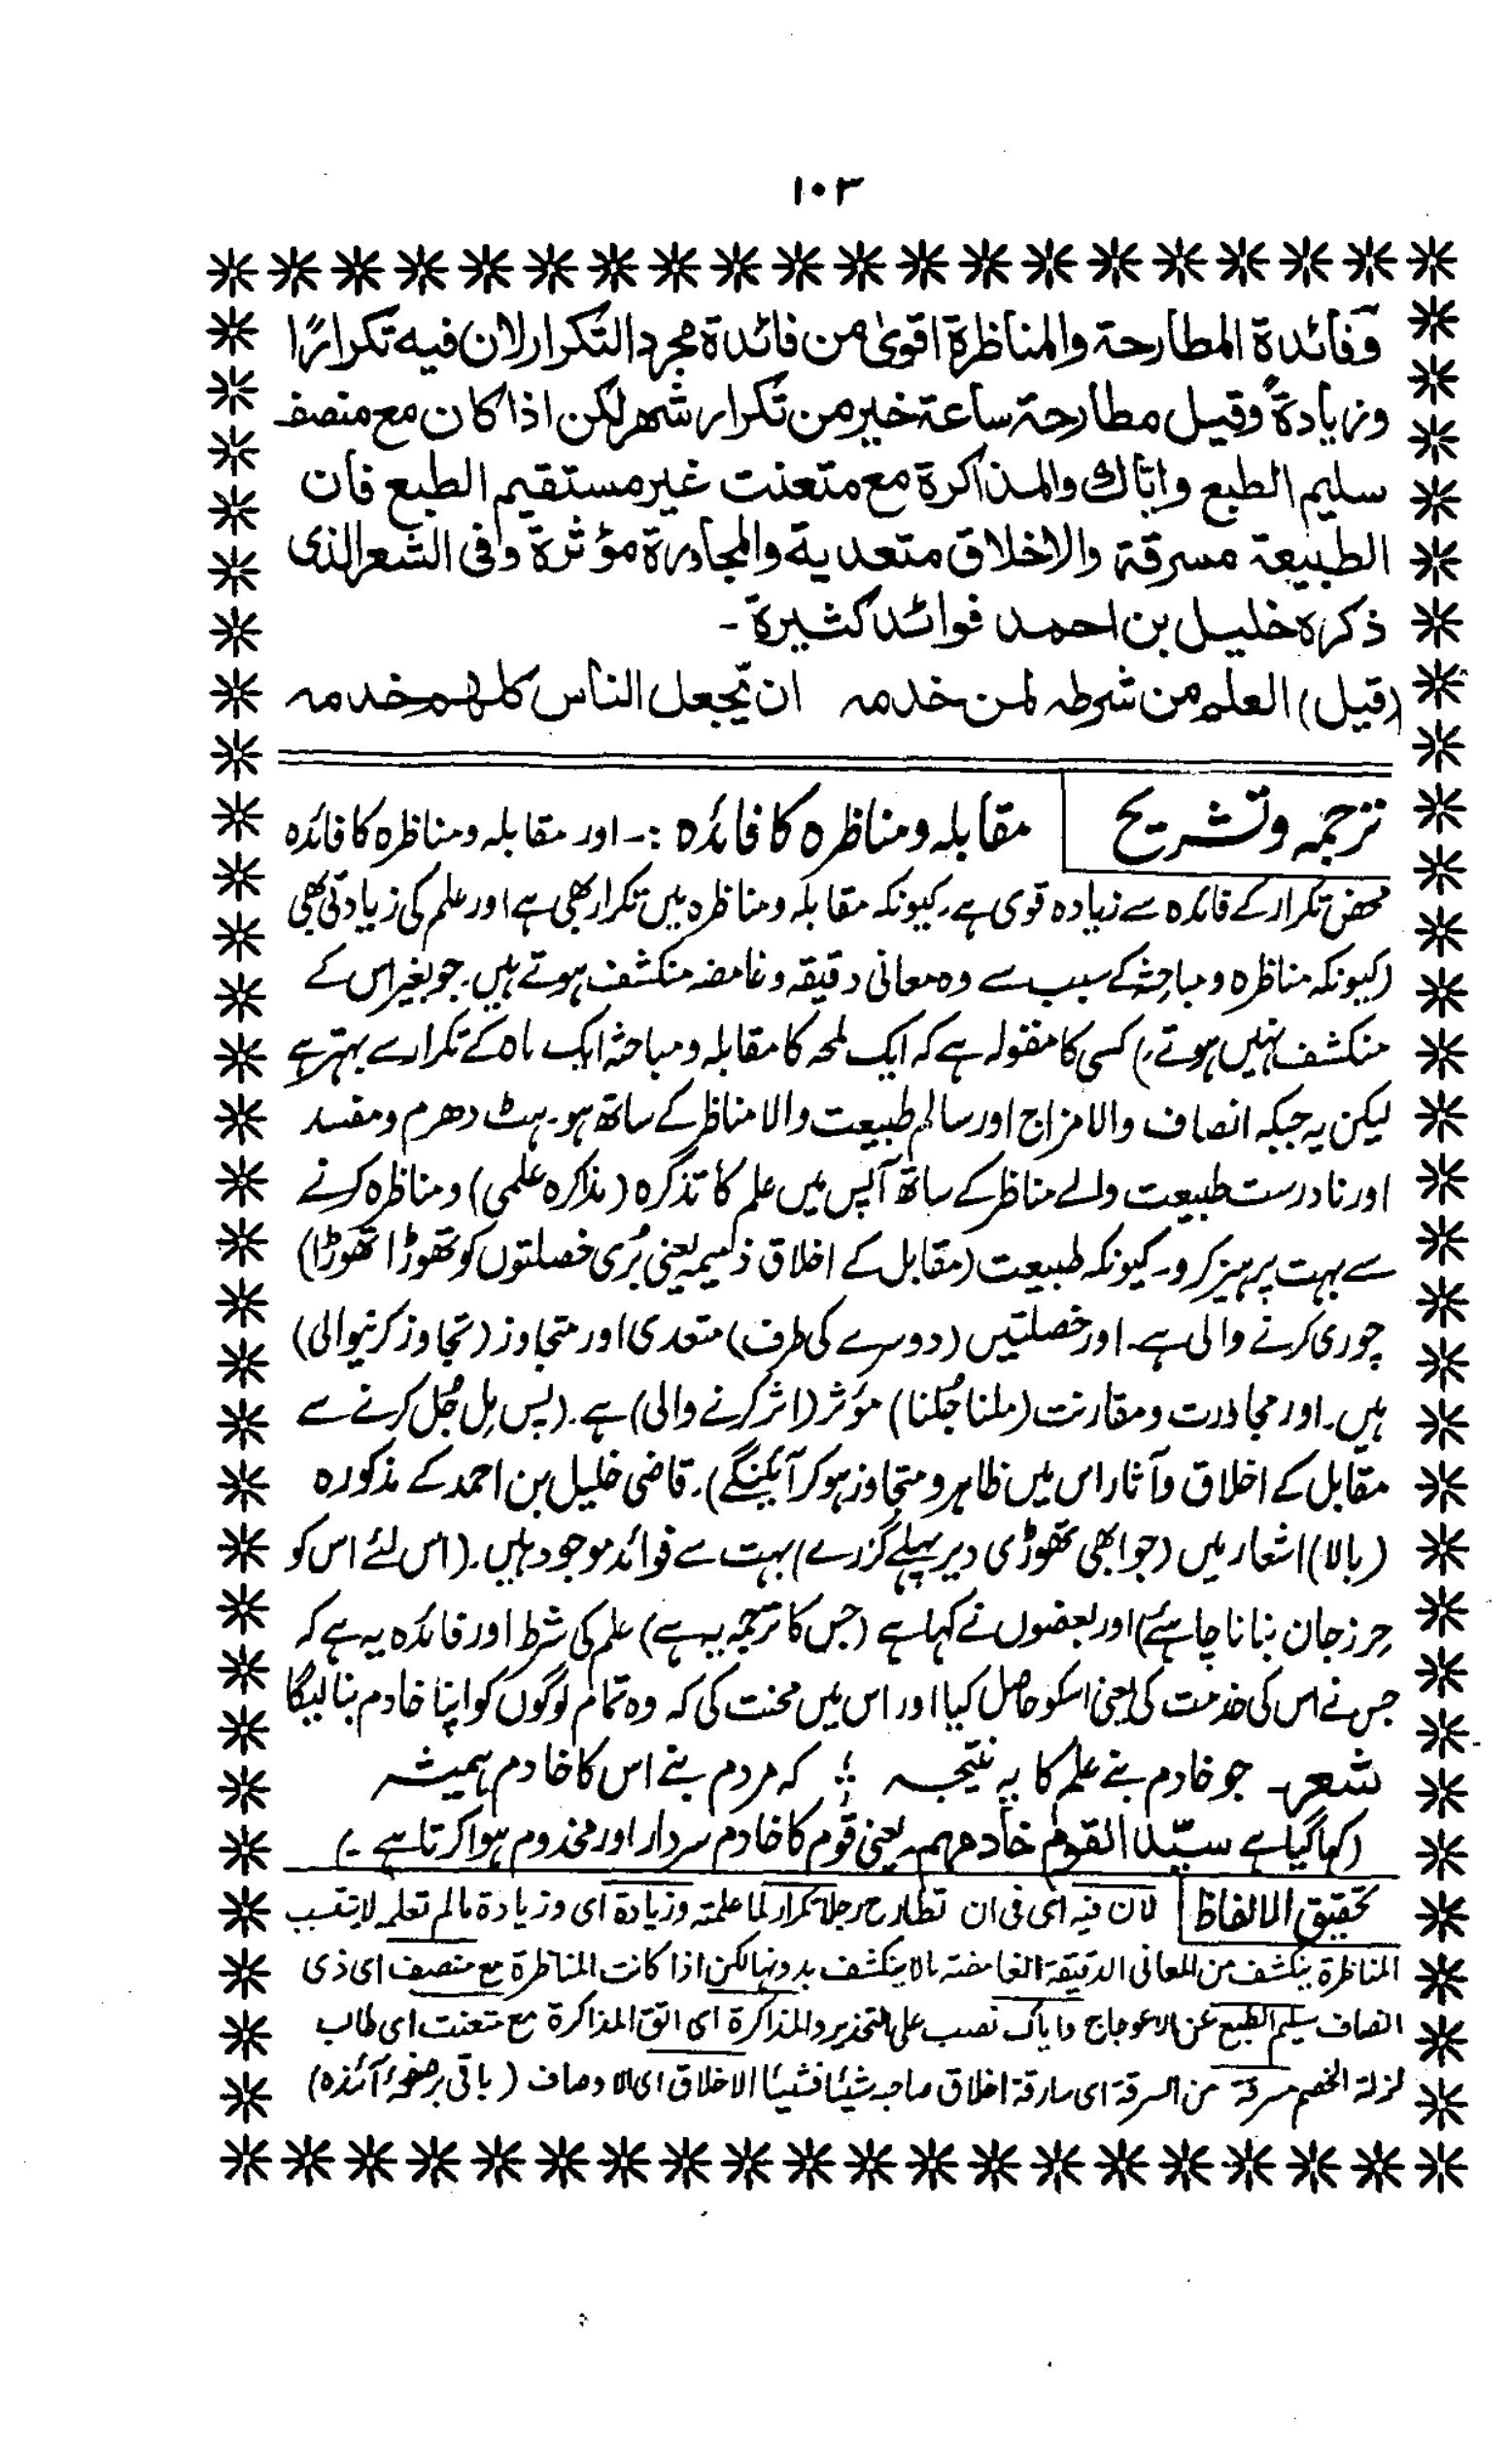 ۱۰۳
وفائدة المطارحة والمناظرة اقوىٰ من فائدة مجرد التكرار لان فيه تكرارًا
وزيادةً وقيل مطارحة ساعة خير من تكرار شهر لكن اذا كان مع منصف
سليم الطبع واياك والمذاكرة مع متعنت غير مستقيم الطبع فان
الطبيعة مسرقة والاخلاق متعدية والمجاورة مؤثرة وفى الشعر الذى
ذكره خليل بن احمد فوائد كثيرة ۔
(قيل) العلم من شرطه لمن خدمه ان يجعل الناس كلهم خدمه
ترجمہ وتشریح مقابلہ ومناظرہ کا فائدہ :۔ اور مقابلہ ومناظرہ کا فائدہ
محض تکرار کے فائدہ سے زیادہ قوی ہے، کیونکہ مقابلہ ومناظرہ میں تکرار بھی ہے اور علم کی زیادتی بھی
(کیونکہ مناظرہ ومباحثہ کے سبب سے وہ معانی دقیقہ وغامضہ منکشف ہوتے ہیں۔ جو بغیر اس کے
منکشف نہیں ہوتے،) کسی کا مقولہ ہے کہ ایک لمحہ کا مقابلہ ومباحثہ ایک ماہ کے تکرار سے بہتر ہے
لیکن یہ جبکہ انصاف والا مزاج اور سالم طبیعت والا مناظر کے ساتھ ہو۔ ہٹ دھرم ومفسد
اور نادرست طبیعت والے مناظر کے ساتھ آپس میں علم کا تذکرہ (مذاکرہ علمی) ومناظرہ کرنے
سے بہت پرہیز کرو۔ کیونکہ طبیعت (مقابل کے اخلاق ذمیمہ یعنی بُری خصلتوں کو تھوڑا تھوڑا)
چوری کرنے والی ہے۔ اور خصلتیں (دوسرے کی طرف) متعدی اور متجاوز (تجاوز کرنیوالی)
ہیں۔ اور مجاورت ومقارنت (ملنا جُلنا) مؤثر (اثر کرنے والی) ہے۔ (پس مِل جُل کرنے سے
مقابل کے اخلاق وآثار اس میں ظاہر ومتجاوز ہو کر آئینگے)۔ قاضی خلیل بن احمد کے مذکورہ
(بالا) اشعار میں (جو ابھی تھوڑی دیر پہلے گزرے) بہت سے فوائد موجود ہیں۔ (اس لئے اس کو
حرزجان بنانا چاہئے) اور بعضوں نے کہا ہے (جس کا ترجمہ یہ ہے) علم کی شرط اور فائدہ یہ ہے کہ
جس نے اس کی خدمت کی یعنی اسکو حاصل کیا اور اس میں محنت کی کہ وہ تمام لوگوں کو اپنا خادم بنالیگا
شعر۔ جو خادم بنے علم کا یہ نتیجہ ؛ کہ مردم بنے اس کا خادم ہمیشہ
(کہا گیا ہے سیّد القوم خادمھم۔ یعنی قوم کا خادم سردار اور مخدوم ہوا کرتا ہے ۔)
تحقیق الالفاظ لان فیہ ای فی ان تطارح رجلا تکرار لما علمتہ وزیادۃ ای وزیادۃ مالم تعلم لا
المناظرة ینکشف من المعانی الدقیقة الغامضة مالا ینکشف بدونہا لکن اذا کانت المناظرة مع منصف ای ذی
انصاف سلیم الطبع عن الاعوجاج وایاک نصب علی التحذیر والمذاکرة ای اتق المذاکرة مع متعنت ای طالب
لزلة الخصم مسرقة من السرقة ای سارقة اخلاق صاحبہ شیئا فشیئا الاخلاق ای الاوصاف (باقی برصفحۂ آئندہ)